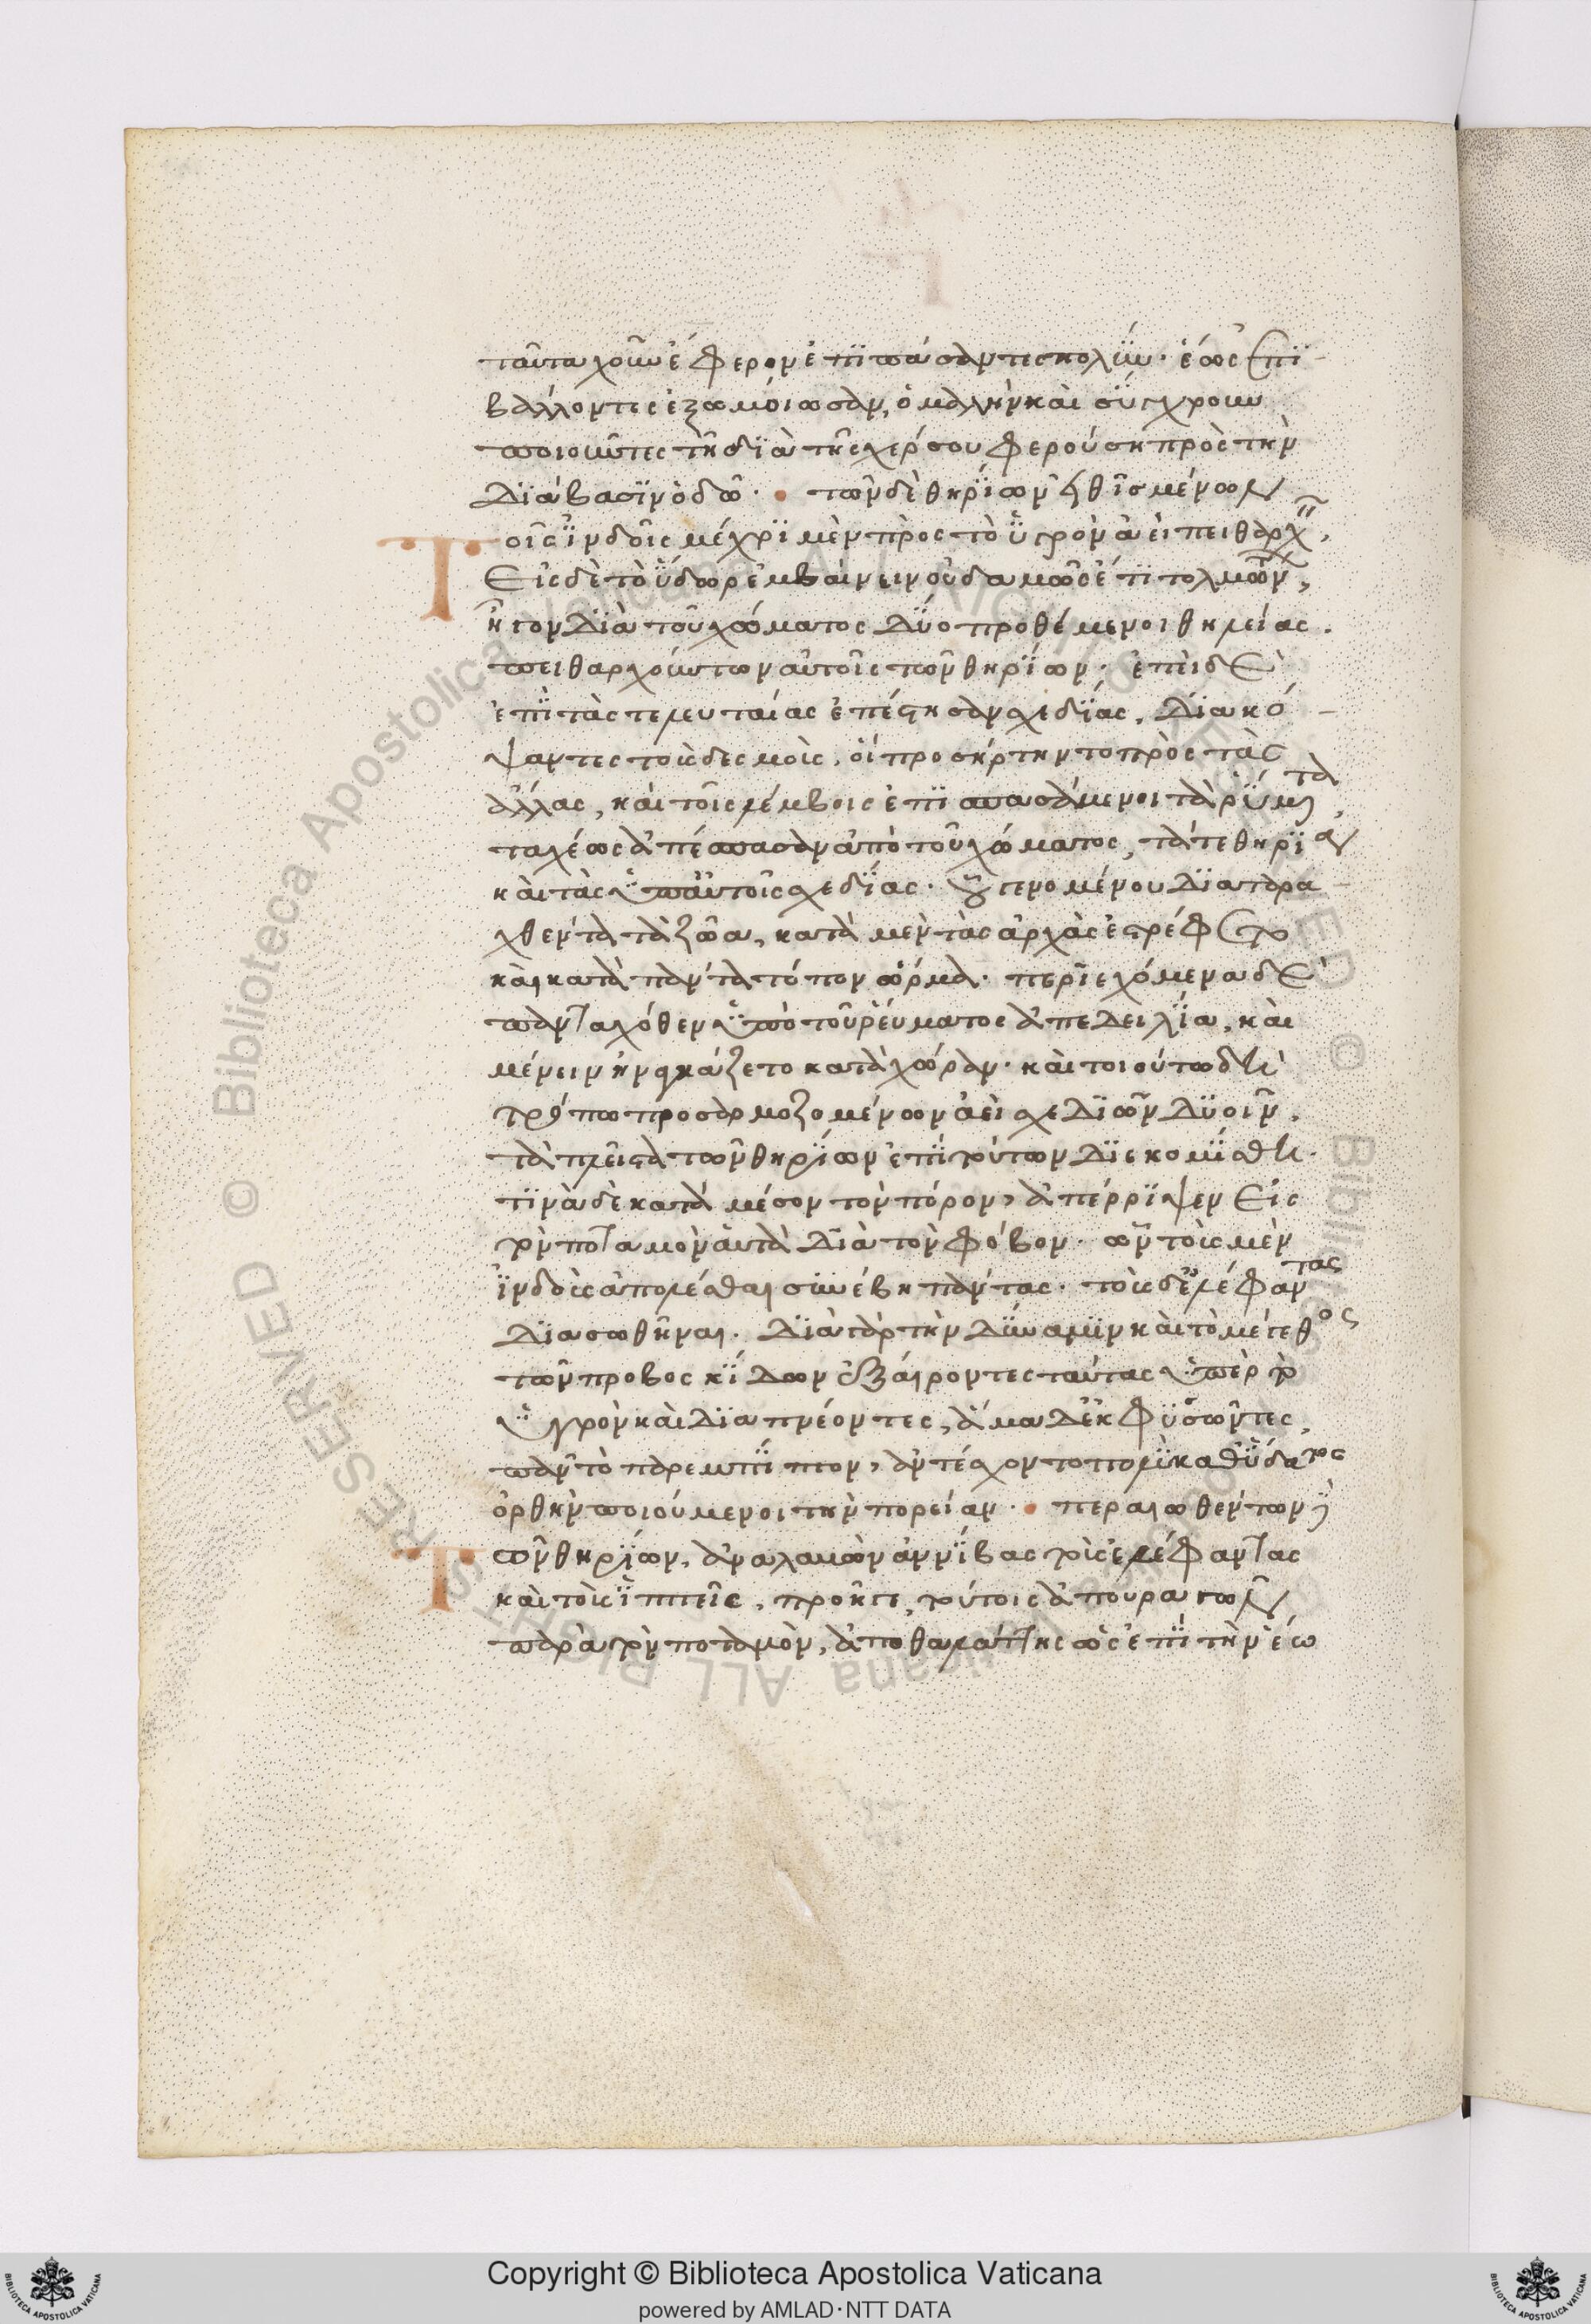 ταῦτα χοῦν ἔφερον ἐπϊπάσαντες πολΰν· ἕως ἐπϊ-
βάλλοντες ἐξωμοίωσαν, ὁμαλὴν καὶ σΰγχρουν
ποιοῦντες τῆ διὰ τῆς χέρσου φερούση πρὸς τὴν
διάβασϊν ὁδῶ· τῶν δὲ θηρίων εἰθισμένων
Τοῖς ϊνδοῖς μέχρϊ μὲν πρὸς τὸ ϋγρὸν ἀεὶ πειθαρχ,
εἰς δὲ τὸ ὕδωρ ἐμβαίνειν οὐδαμῶς ἔτϊ τολμών,
ἦγον διὰ τοῦ χώματος δύο προθέμενοι θηλείας.
πειθαρχούντων αὐτοῖς τῶν θηρίων· ἐπεὶ δὲ
ἐπϊ τὰς τελευταίας ἐπέστησαν σχεδίας, διακό-
ψαντες τοὺς δεσμοὺς, οἳ προσήρτηντο πρὸς τὰς
ἄλλας, καὶ τοῖς λέμβοις ἐπϊσπασάμενοι τὰ ρΰματα,
ταχέως ἀπέσπασαν ἀπὸ τοῦ χώματος, τά τε θηρία
καὶ τὰς ὑπ' αὐτοῖς σχεδίας· οὗ γενομένου διαταρα-
χθέντα τὰ ζῶα, κατὰ μὲν τὰς ἀρχὰς ἐστρέφετο
καὶ κατὰ πάντα τόπον ὥρμα· περϊεχόμενα δὲ
πανταχόθεν ὑπὸ τοῦ ῥεύματος ἀπεδειλία, καὶ
μένειν ἠναγκάζετο κατὰ χώραν· καὶ τοιούτω δὴ
τρόπω προσαρμοζομένων ἀεὶ σχεδιῶν δυοῖν,
τὰ πλεῖστα τῶν θηρίων ἐπὶ τούτων διεκομίσθη·
τϊνὰ δὲ κατὰ μέσον τὸν πόρον, ἀπέρριψεν εἰς
τὸν ποταμὸν αὑτὰ διὰ τὸν φόβον· ὧν τοὺς μὲν
ϊνδοὺς ἀπολέσθαι συνέβη πάντας· τοὺς δ' ἐλέφαντας
διασωθῆναι· διὰ γὰρ τὴν δύναμιν καὶ τὸ μέγεθος
τῶν προβοσκίδων ἐξαίροντες ταύτας ὑπὲρ τὸ
ὑγρὸν καὶ διαπνέοντες, ἅμα δ' ἐκφυσῶντες
πᾶν τὸ παρεμπίπτον, ἀντέσχον τὸ πολὺ καθ' ὕδατος
ὀρθὴν ποιούμενοι τὴν πορείαν· περαιωθέντων δὲ
Τῶν θηρίων, ἀναλαμὼν ἀννίβας τοὺς ἐλέφαντας
καὶ τοὺς ἱππεῖς, προῆγε, τούτοις ἀπουραγῶν
παρὰ τὸν ποταμὸν, ἀπο θαλάττης ὡς ἐπὶ τὴν ἕω